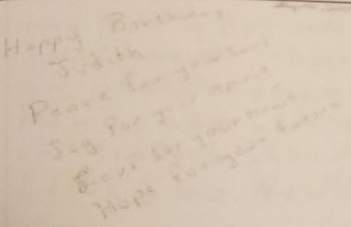 Happy Birthday
Judith
Peace for your soul
Joy for your spirit
Love for your heart
Hope for your future